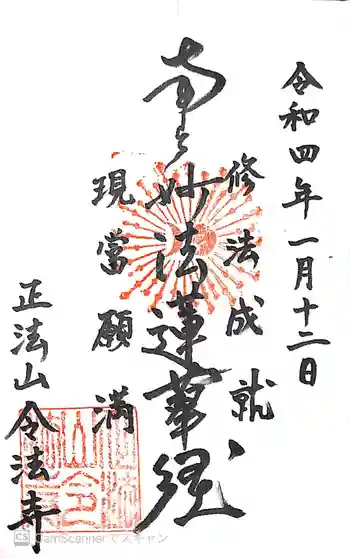 令和四年一月十二日
修法成就
南無妙法蓮華経
現當願満
正法山
令法寺
CS CamScanner でスキャン